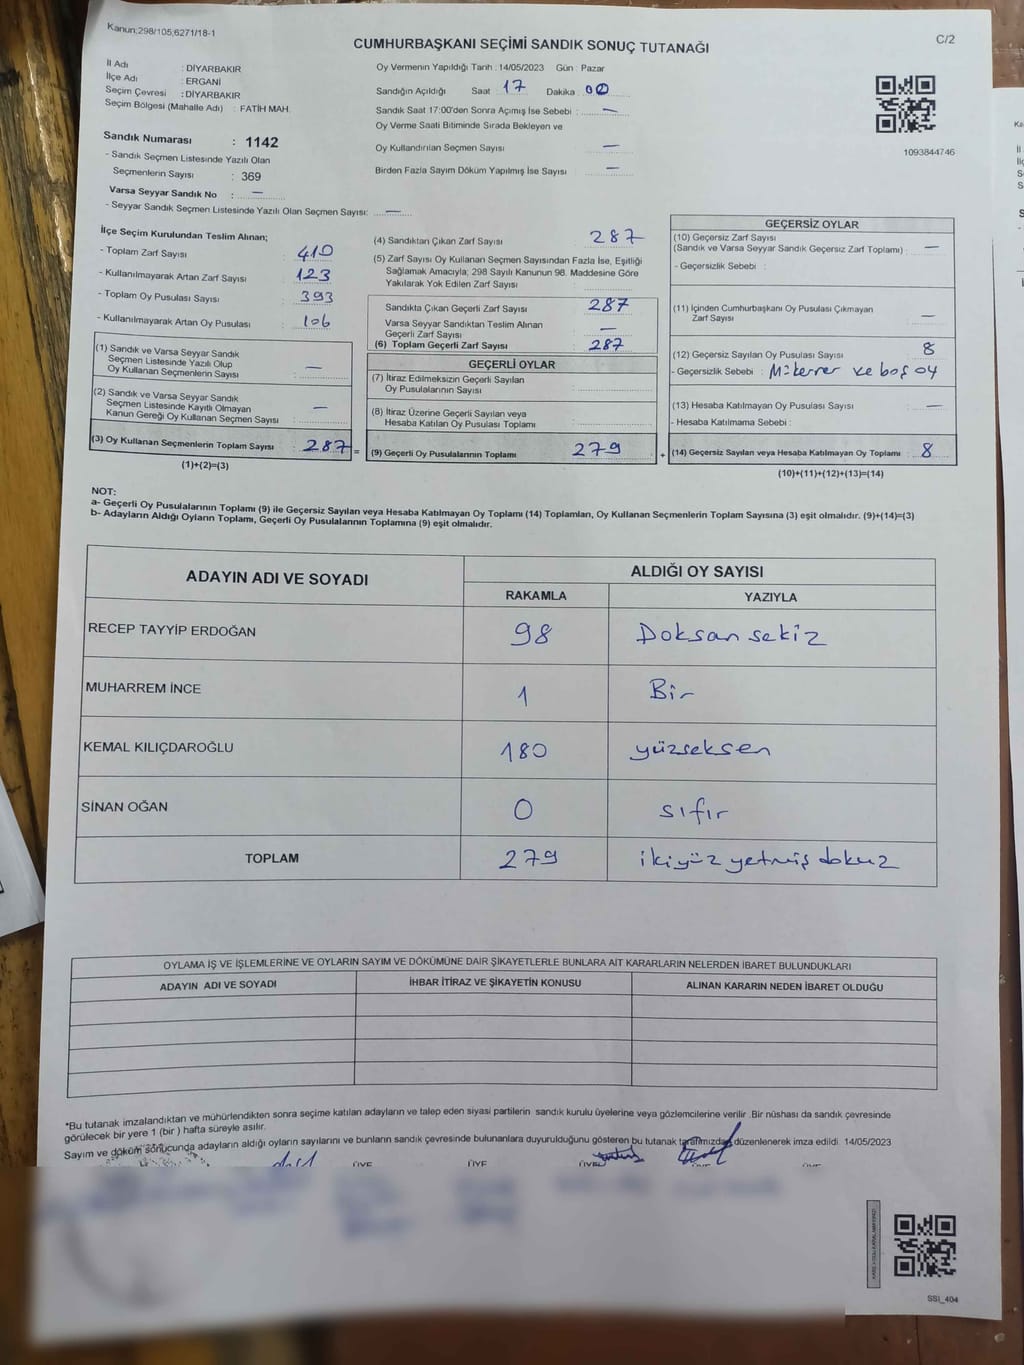 Kanun;298/105;6271/18-1
C/2
CUMHURBAŞKANI SEÇİMİ SANDIK SONUÇ TUTANAĞI
İl Adı : DİYARBAKIR
İlçe Adı : ERGANİ
Seçim Çevresi : DİYARBAKIR
Seçim Bölgesi (Mahalle Adı) : FATİH MAH.
Oy Vermenin Yapıldığı Tarih : 14/05/2023 Gün : Pazar
Sandığın Açıldığı Saat 17 Dakika 00
Sandık Saat 17:00'den Sonra Açımış İse Sebebi : —
Oy Verme Saati Bitiminde Sırada Bekleyen ve
Oy Kullandırılan Seçmen Sayısı —
Birden Fazla Sayım Döküm Yapılmış İse Sayısı —
1093844746
Sandık Numarası : 1142
- Sandık Seçmen Listesinde Yazılı Olan
Seçmenlerin Sayısı : 369
Varsa Seyyar Sandık No : —
- Seyyar Sandık Seçmen Listesinde Yazılı Olan Seçmen Sayısı: —
İlçe Seçim Kurulundan Teslim Alınan;
- Toplam Zarf Sayısı : 410
- Kullanılmayarak Artan Zarf Sayısı : 123
- Toplam Oy Pusulası Sayısı : 393
- Kullanılmayarak Artan Oy Pusulası : 106
(1) Sandık ve Varsa Seyyar Sandık
Seçmen Listesinde Yazılı Olup
Oy Kullanan Seçmenlerin Sayısı : —
(2) Sandık ve Varsa Seyyar Sandık
Seçmen Listesinde Kayıtlı Olmayan
Kanun Gereği Oy Kullanan Seçmen Sayısı : —
(3) Oy Kullanan Seçmenlerin Toplam Sayısı : 287 =
(1)+(2)=(3)
(4) Sandıktan Çıkan Zarf Sayısı : 287
(5) Zarf Sayısı Oy Kullanan Seçmen Sayısından Fazla İse, Eşitliği
Sağlamak Amacıyla; 298 Sayılı Kanunun 98. Maddesine Göre
Yakılarak Yok Edilen Zarf Sayısı :
Sandıkta Çıkan Geçerli Zarf Sayısı : 287
Varsa Seyyar Sandıktan Teslim Alınan
Geçerli Zarf Sayısı : —
(6) Toplam Geçerli Zarf Sayısı : 287
GEÇERLİ OYLAR
(7) İtiraz Edilmeksizin Geçerli Sayılan
Oy Pusulalarının Sayısı :
(8) İtiraz Üzerine Geçerli Sayılan veya
Hesaba Katılan Oy Pusulası Toplamı :
(9) Geçerli Oy Pusulalarının Toplamı : 279 +
GEÇERSİZ OYLAR
(10) Geçersiz Zarf Sayısı
(Sandık ve Varsa Seyyar Sandık Geçersiz Zarf Toplamı) : —
- Geçersizlik Sebebi :
(11) İçinden Cumhurbaşkanı Oy Pusulası Çıkmayan
Zarf Sayısı : —
(12) Geçersiz Sayılan Oy Pusulası Sayısı : 8
- Geçersizlik Sebebi : Mükerrer ve boş oy
(13) Hesaba Katılmayan Oy Pusulası Sayısı : —
- Hesaba Katılmama Sebebi :
(14) Geçersiz Sayılan veya Hesaba Katılmayan Oy Toplamı : 8
(10)+(11)+(12)+(13)=(14)
NOT:
a- Geçerli Oy Pusulalarının Toplamı (9) ile Geçersiz Sayılan veya Hesaba Katılmayan Oy Toplamı (14) Toplamları, Oy Kullanan Seçmenlerin Toplam Sayısına (3) eşit olmalıdır. (9)+(14)=(3)
b- Adayların Aldığı Oyların Toplamı, Geçerli Oy Pusulalarının Toplamına (9) eşit olmalıdır.
ADAYIN ADI VE SOYADI
ALDIĞI OY SAYISI
RAKAMLA YAZIYLA
RECEP TAYYİP ERDOĞAN 98 Doksan sekiz
MUHARREM İNCE 1 Bir
KEMAL KILIÇDAROĞLU 180 yüzseksen
SİNAN OĞAN 0 sıfır
TOPLAM 279 ikiyüz yetmiş dokuz
OYLAMA İŞ VE İŞLEMLERİNE VE OYLARIN SAYIM VE DÖKÜMÜNE DAİR ŞİKAYETLERLE BUNLARA AİT KARARLARIN NELERDEN İBARET BULUNDUKLARI
ADAYIN ADI VE SOYADI İHBAR İTİRAZ VE ŞİKAYETİN KONUSU ALINAN KARARIN NEDEN İBARET OLDUĞU
*Bu tutanak imzalandıktan ve mühürlendikten sonra seçime katılan adayların ve talep eden siyasi partilerin sandık kurulu üyelerine veya gözlemcilerine verilir .Bir nüshası da sandık çevresinde
görülecek bir yere 1 (bir ) hafta süreyle asılır.
Sayım ve döküm sonucunda adayların aldığı oyların sayılarını ve bunların sandık çevresinde bulunanlara duyurulduğunu gösteren bu tutanak tarafımızdan düzenlenerek imza edildi. 14/05/2023
ÜYE ÜYE ÜYE
SSI_404